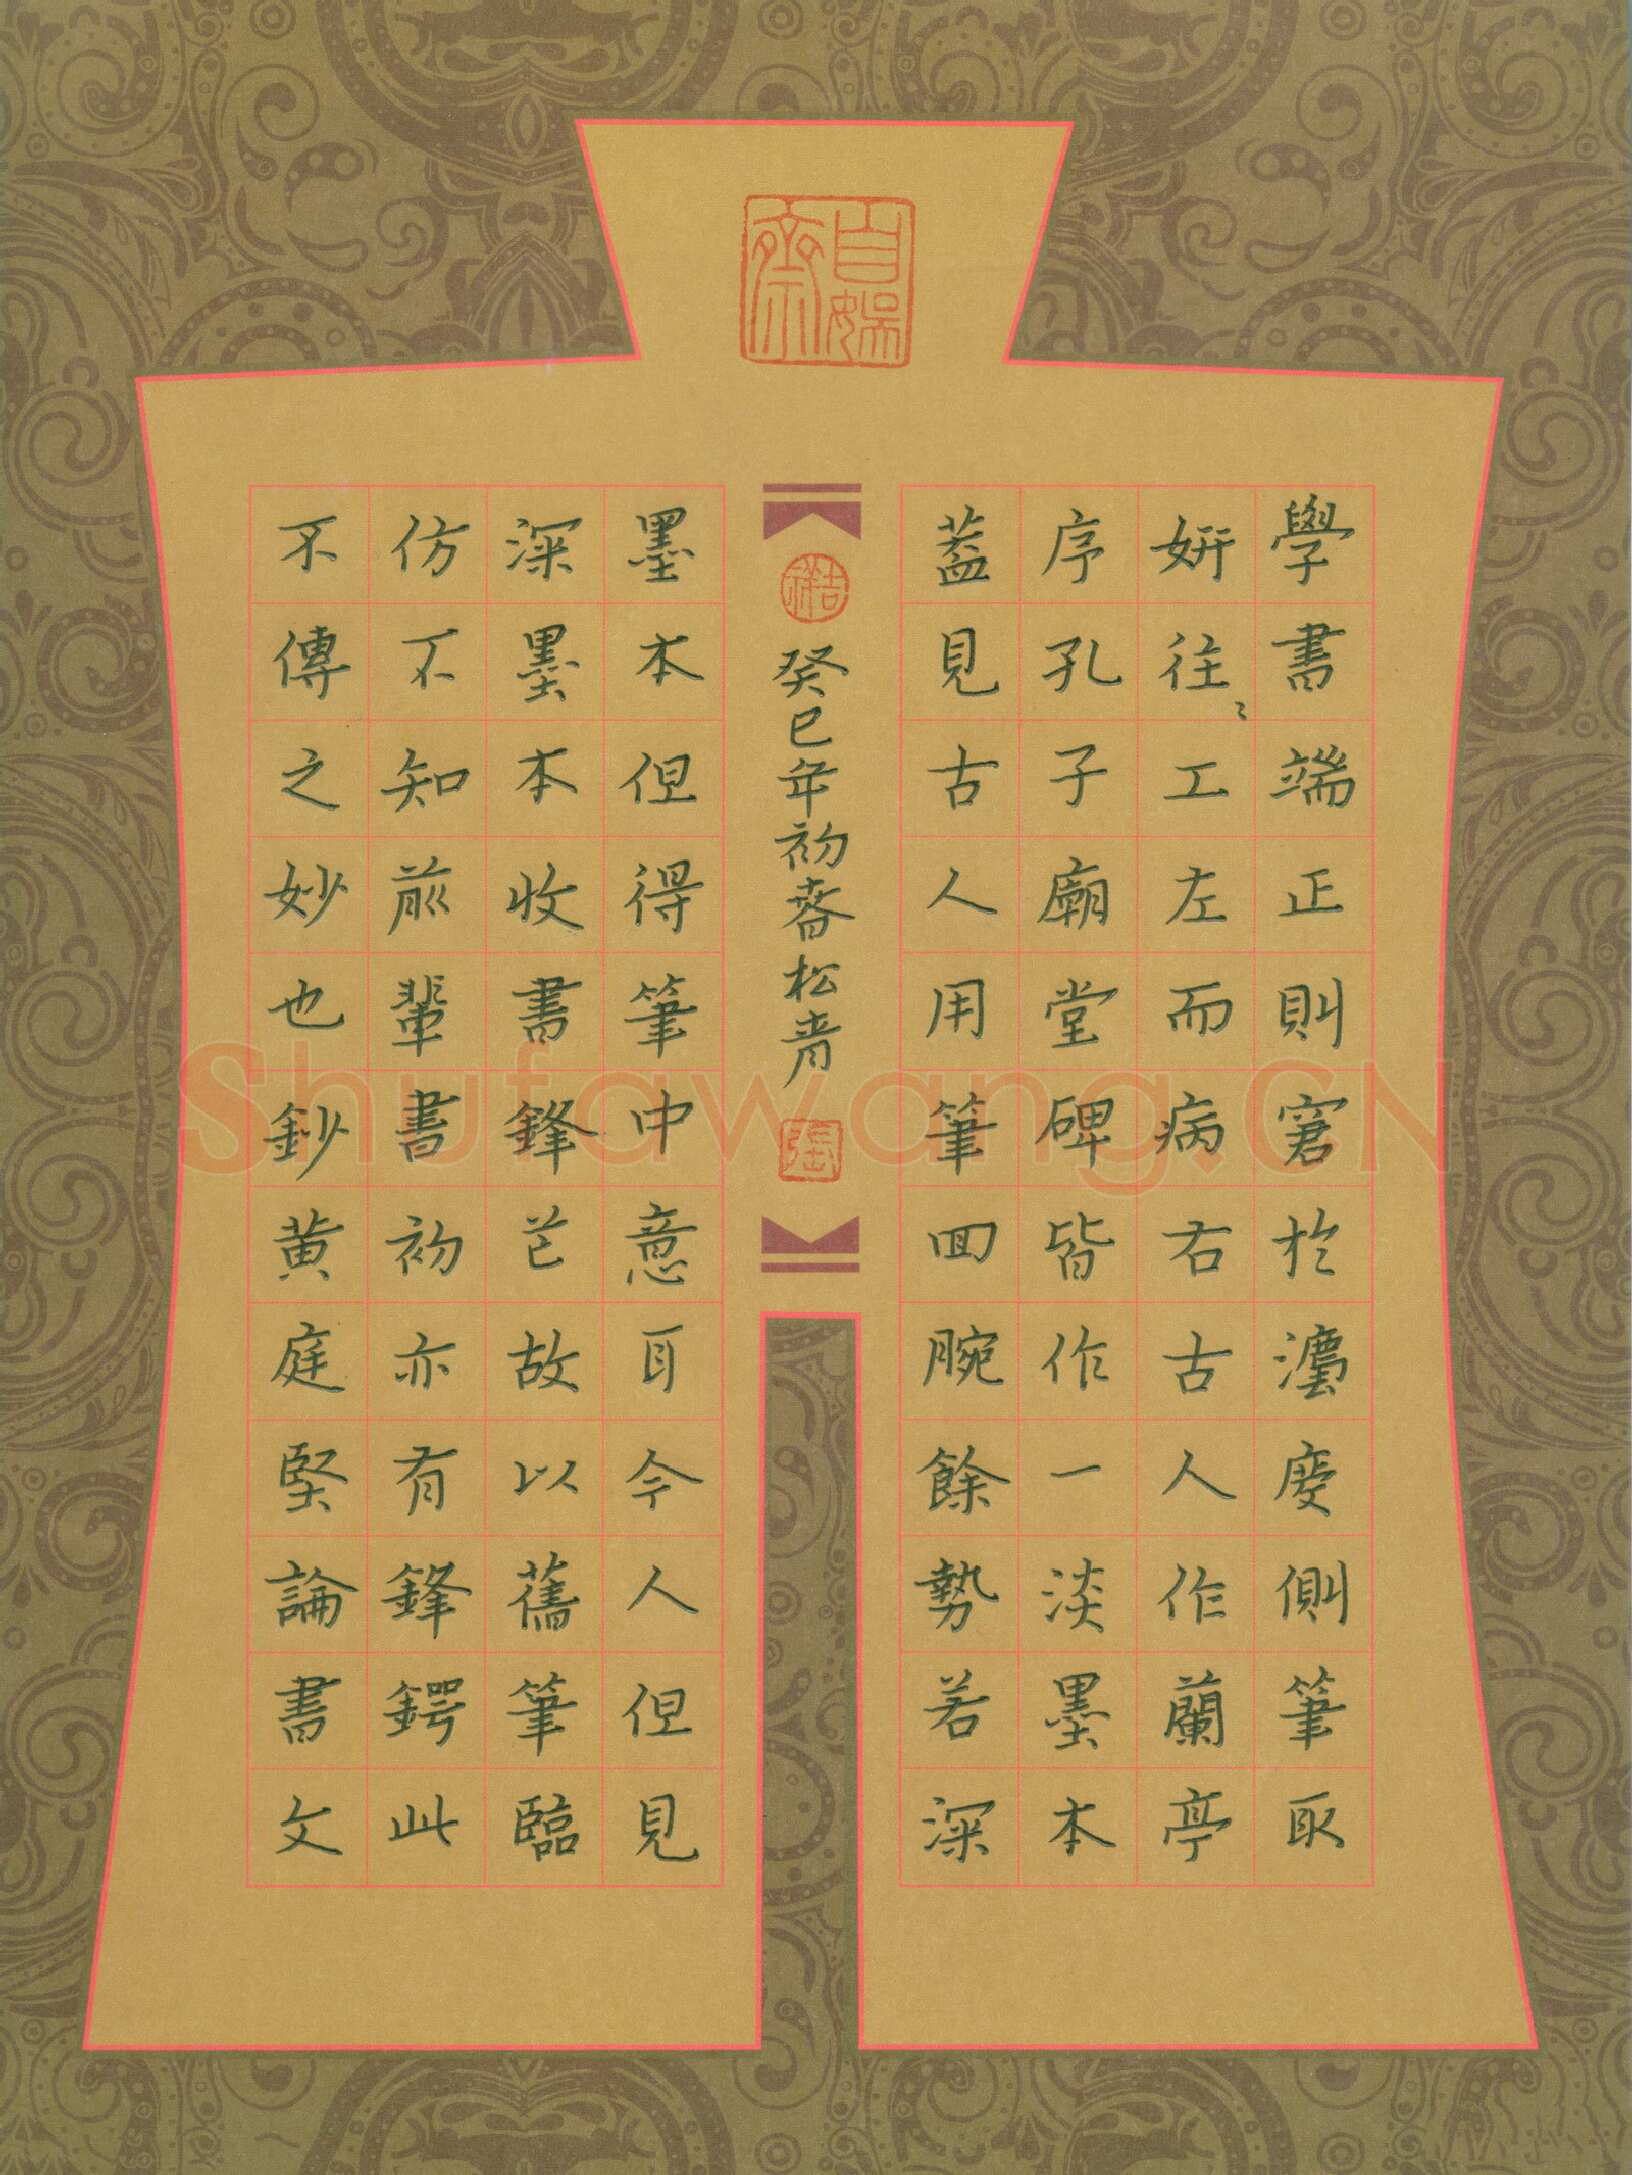 自娛齋
學書端正則窘於灋度側筆取
妍往〻工左而病右古人作蘭亭
序孔子廟堂碑皆作一淡墨本
蓋見古人用筆回腕餘勢若深
墨本但得筆中意耳今人但見
深墨本收書鋒芒故以舊筆臨
仿不知前輩書初亦有鋒鍔此
不傳之妙也鈔黃庭堅論書文
吉祥
癸巳年初春松青
張
Shufawang.CN